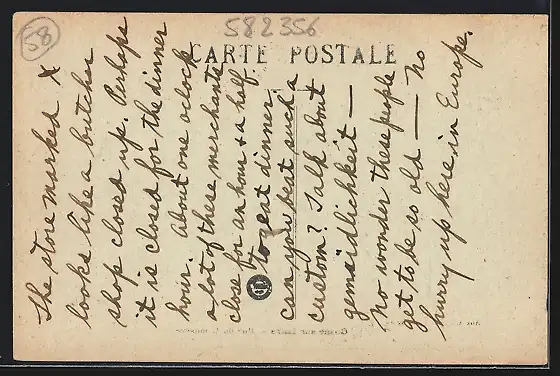 58
582356
CARTE POSTALE
The store marked X
looks like a butcher
shop closed up. Perhaps
it is closed for the dinner
hour. About one oclock
a lot of these merchants
close for an hour & a half
to eat dinner.
Can you beat such a
custom? Talk about
gemaidlichkeit —
No wonder these people
get to be so old — No
hurry up here in Europe.